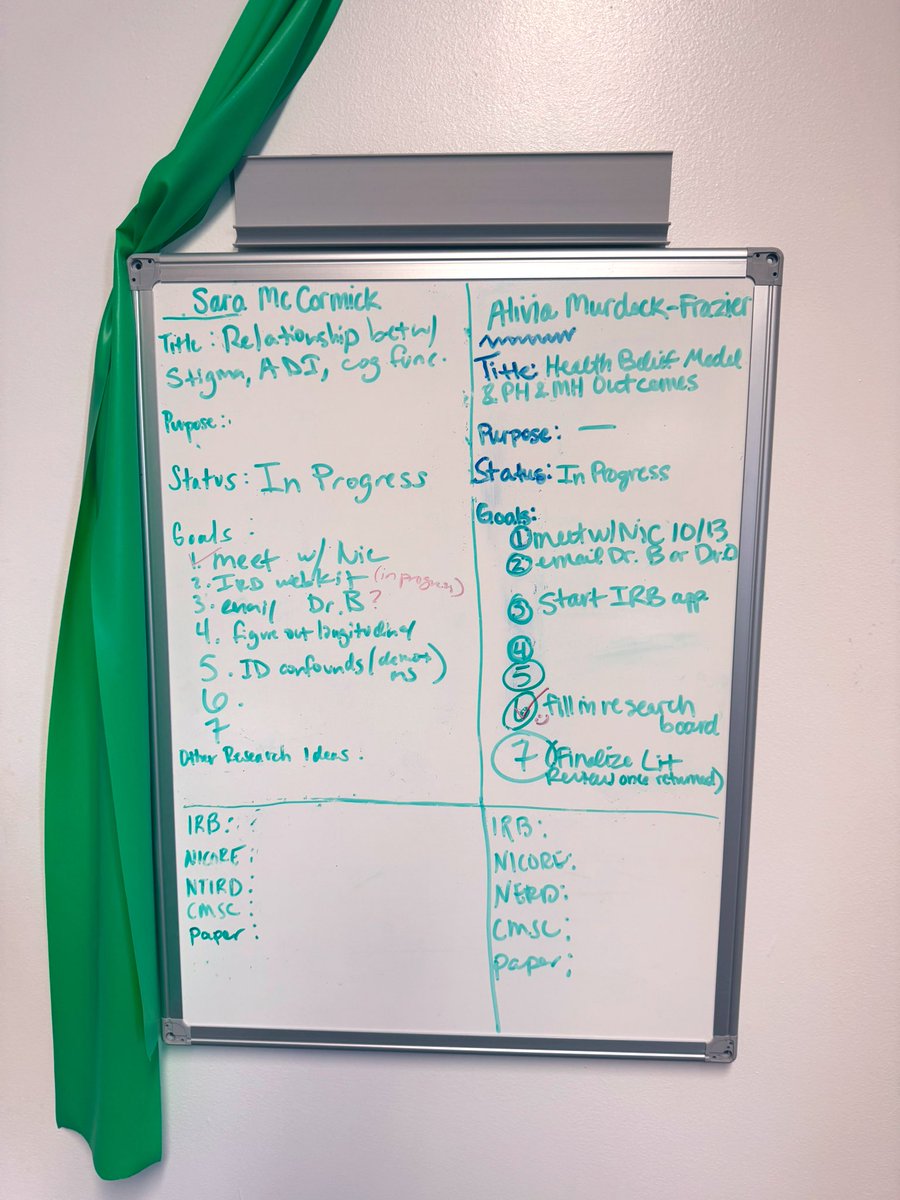 Sara McCormick
Title: Relationship betw/
Stigma, ADI, cog func.
Purpose:
Status: In Progress
Goals:
1. meet w/ Nic
2. IRD webkit (in progress)
3. email Dr. B?
4. figure out longitudinal
5. ID confounds (demos
ms)
6.
7
Other Research Ideas.
IRB:
NICORE:
NTIRD:
CMSC:
Paper:
Alivia Murdock-Frazier
Title: Health Belief Model
& PH & MH Outcomes
Purpose: —
Status: In Progress
Goals:
① meet w/ Nic 10/13
② email Dr. B or Dr. D
③ Start IRB app
④
⑤
⑥ fill in research
board
⑦ (Finalize Lit
Review once returned)
IRB:
NICORE:
NERD:
CMSC:
paper: